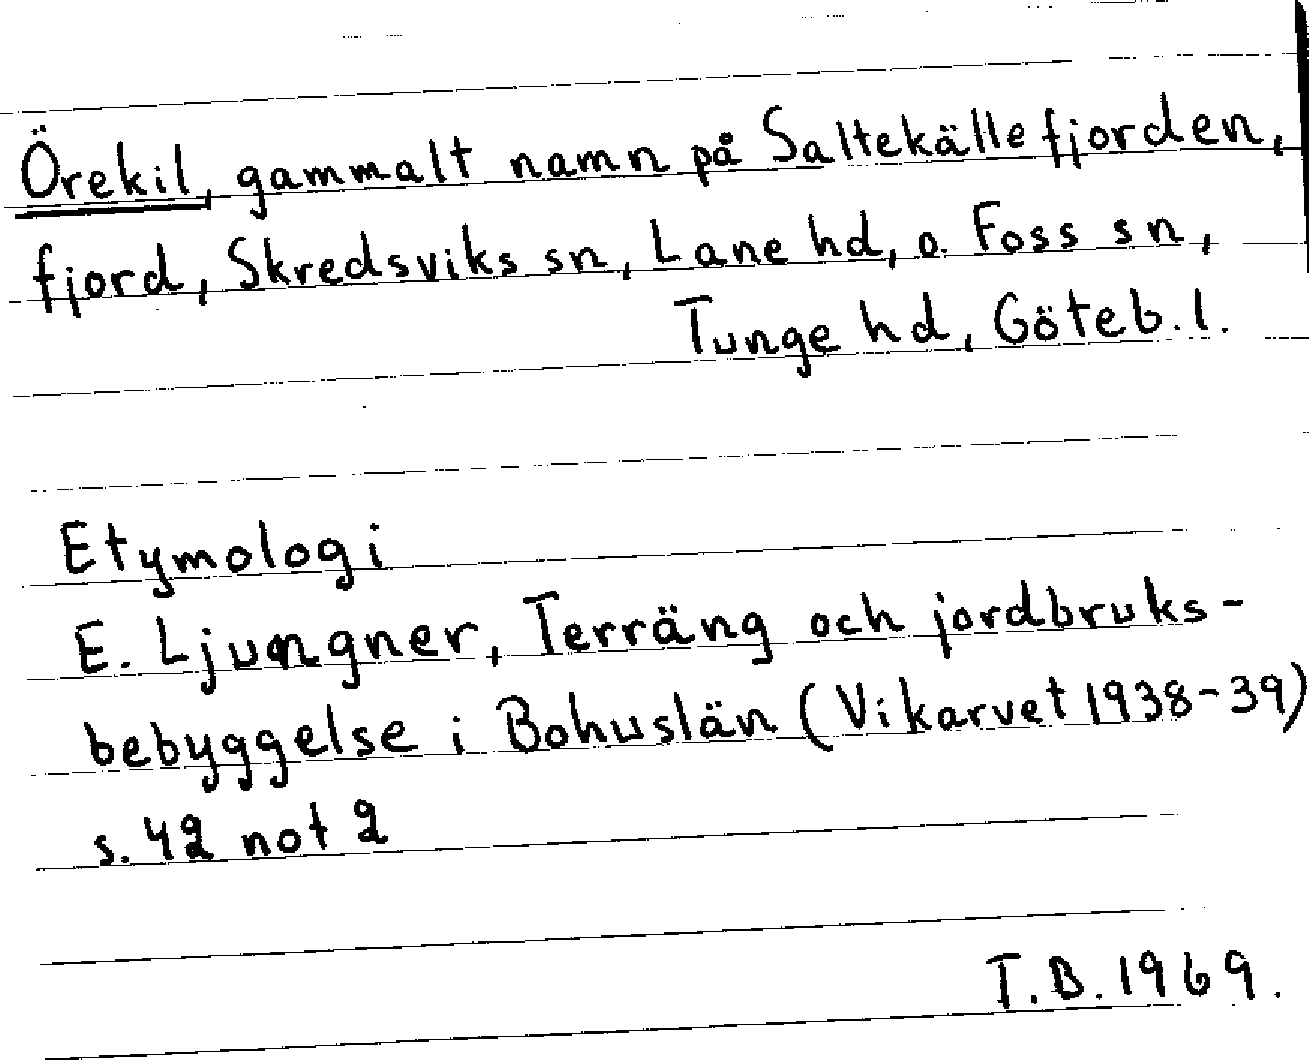 Örekil, gammalt namn på Saltekällefjorden,
fjord, Skredsviks sn, Lane hd, o. Foss sn,
Tunge hd, Göteb. l.
Etymologi
E. Ljungner, Terräng och jordbruks-
bebyggelse i Bohuslän (Vikarvet 1938-39)
s. 42 not 2
T.B. 1969.